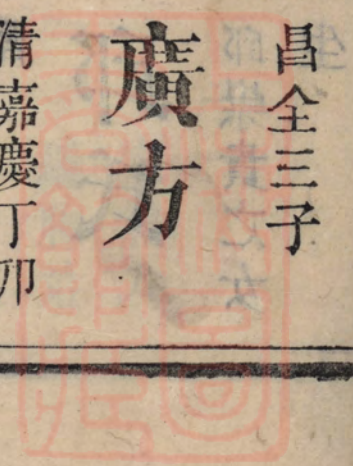 昌全三子
廣方
清嘉慶丁卯